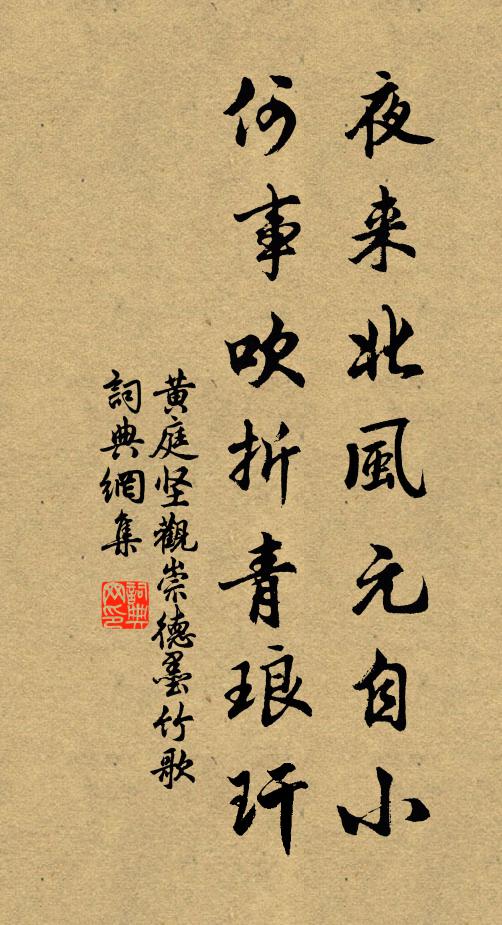 夜来北風元自小
何事吹折青琅玕
黄庭坚觀崇德墨竹歌
詞典網集
詞典网印